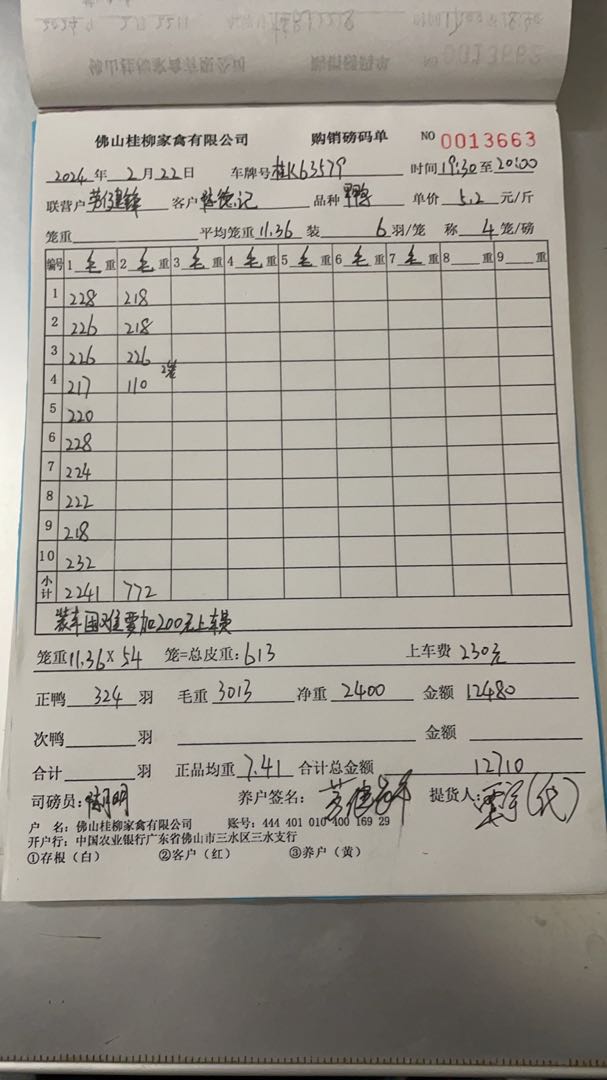 佛山桂柳家禽有限公司 购销磅码单 NO 0013663
2024年2月22日 车牌号 桂K63579 时间19:30至20:00
联营户 客户 德记 品种 鸭 单价 5.2 元/斤
笼重 平均笼重 11.36 装 6 羽/笼 称 4 笼/磅
编号 1毛重 2毛重 3毛重 4毛重 5毛重 6毛重 7毛重 8 重 9 重
1 228 218
2 226 218
3 226 226
4 217 110 2笼
5 220
6 228
7 224
8 222
9 218
10 232
小计 2241 772
装车困难要加200元上车费
笼重11.36×54 笼=总皮重:613 上车费 230元
正鸭 324 羽 毛重 3013 净重 2400 金额 12480
次鸭 羽 金额
合计 羽 正品均重 7.41 合计总金额 12710
司磅员: 明 养户签名: 提货人: (代)
户 名:佛山桂柳家禽有限公司 账号:444 401 010 400 169 29
开户行:中国农业银行广东省佛山市三水区三水支行
①存根(白) ②客户(红) ③养户(黄)